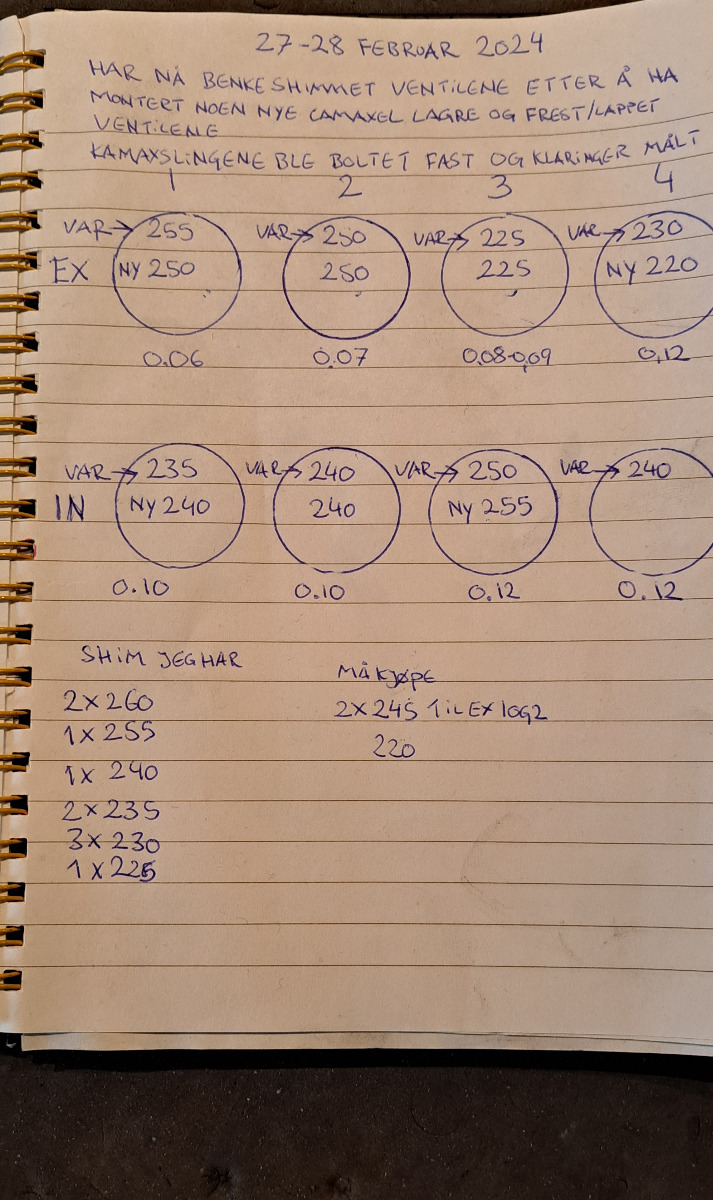 27-28 FEBRUAR 2024
HAR NÅ BENKESHIMMET VENTILENE ETTER Å HA
MONTERT NOEN NYE CAMAXEL LAGRE OG FREST/LAPPET
VENTILENE
KAMAXSLINGENE BLE BOLTET FAST OG KLARINGER MÅLT
1 2 3 4
VAR→ 255 VAR→ 250 VAR→ 225 VAR→ 230
EX NY 250 250 225 NY 220
0.06 0.07 0.08-0,09 0,12
VAR→ 235 VAR→ 240 VAR→ 250 VAR→ 240
IN NY 240 240 NY 255
0.10 0.10 0.12 0.12
SHIM JEG HAR MÅ KJØPE
2X260 2X245 TIL EX 1OG2
1X 255 220
1X 240
2X235
3X 230
1X225